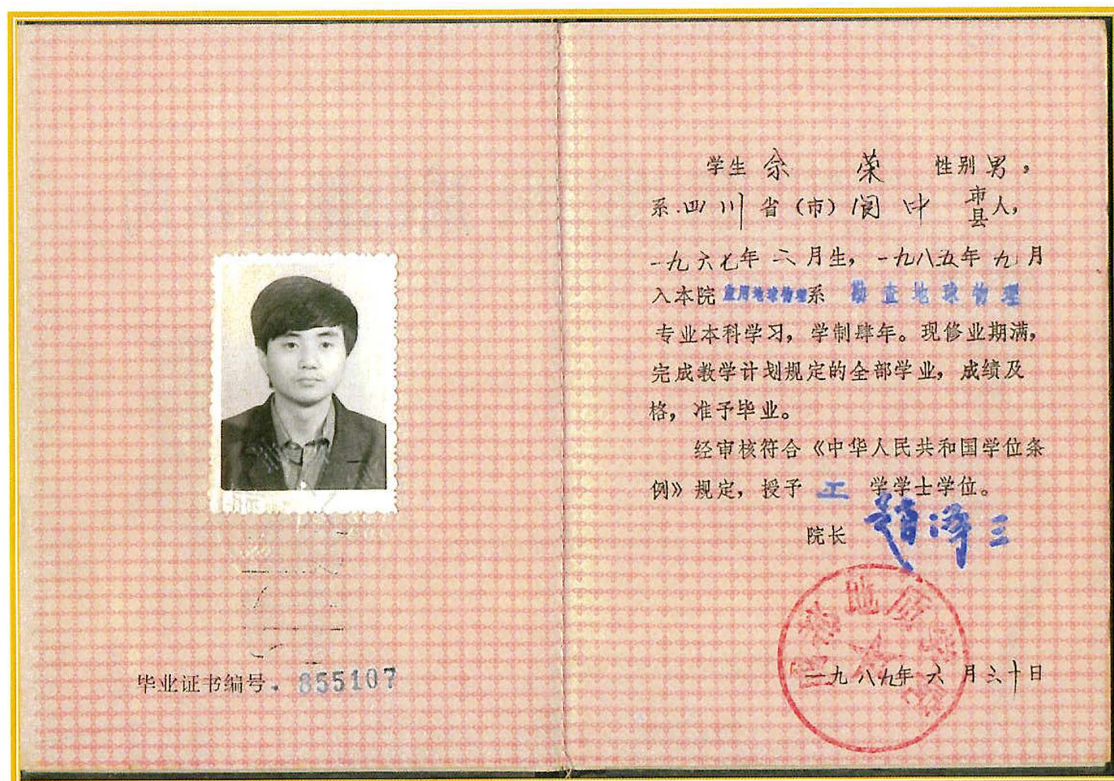 毕业证书编号. 855107
学生 余 荣 性别 男,
系 四川 省(市) 阆中 市县 人,
一九六七年 二 月生, 一九八五年 九 月
入本院 应用地球物理 系 勘查地球物理
专业本科学习, 学制肆年。现修业期满,
完成教学计划规定的全部学业, 成绩及
格, 准予毕业。
经审核符合《中华人民共和国学位条
例》规定, 授予 工 学学士学位。
院长 赵泽三
成都地质学院
一九八九年 六 月三十日